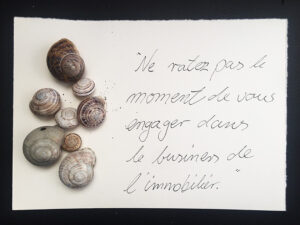 "Ne ratez pas le
moment de vous
engager dans
le business de
l'immobilier."